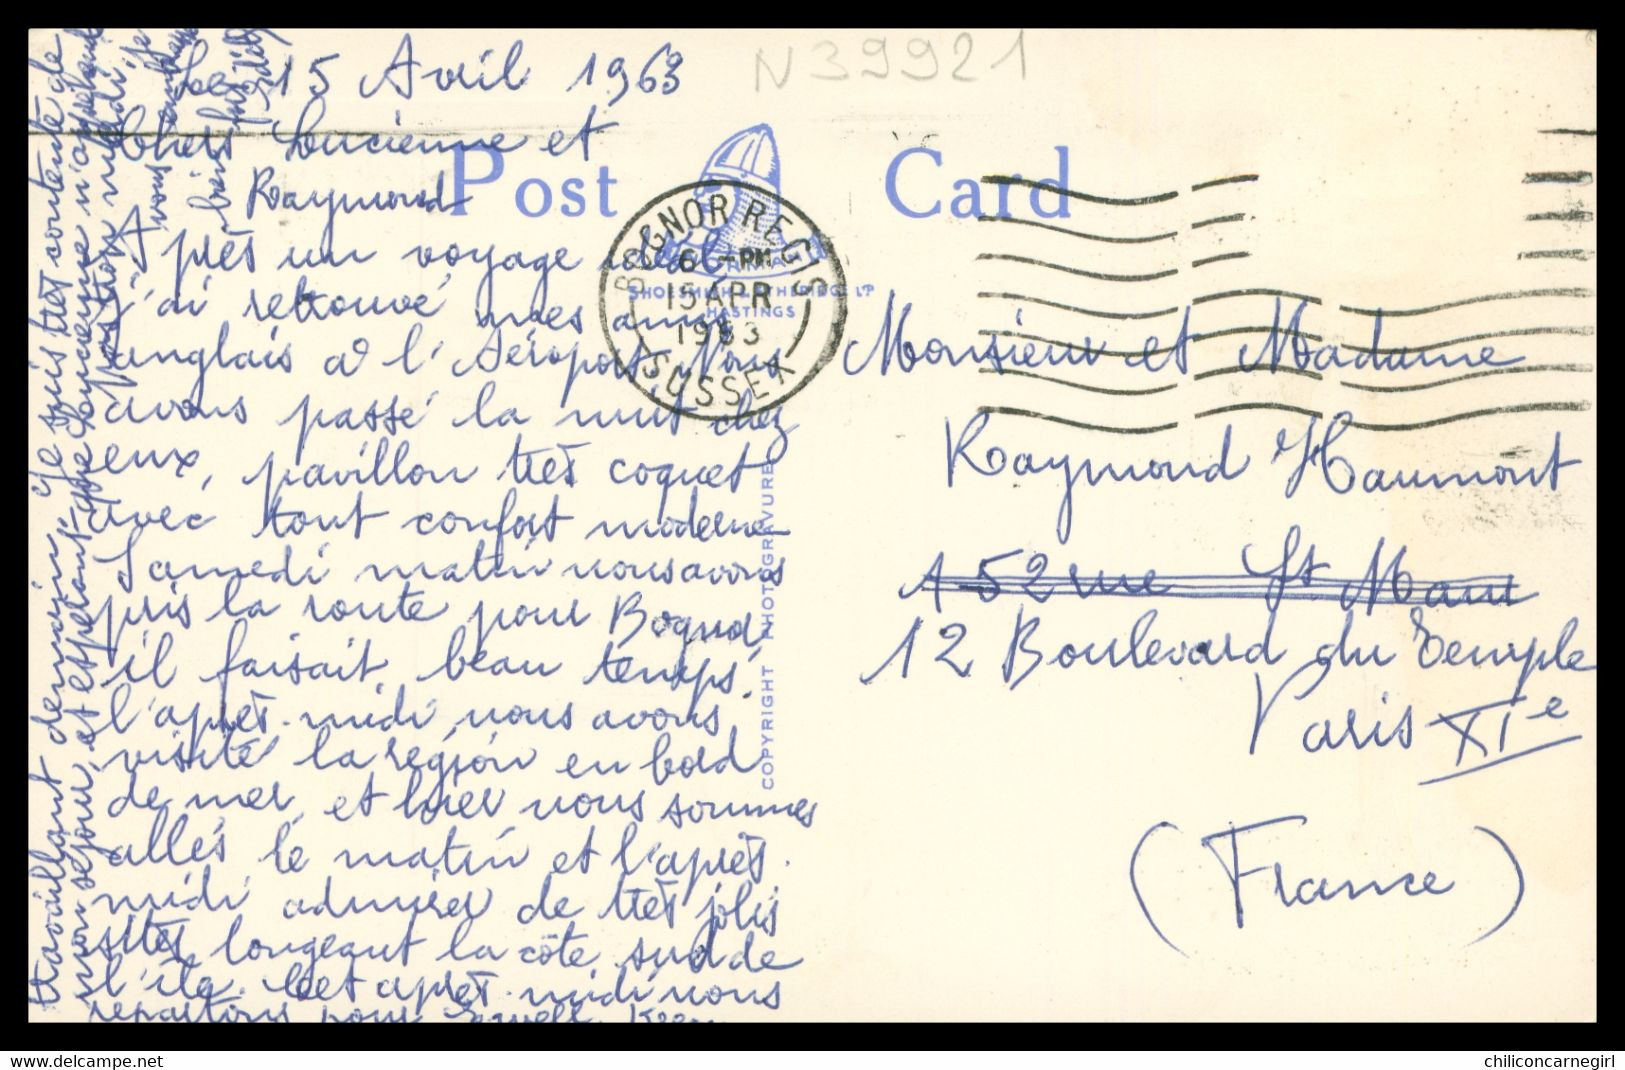 N39921
Le 15 Avril 1963
Chers Lucienne et
Raymond
Après un voyage idéal,
j'ai retrouvé mes amis
anglais à l'Aéroport, Nous
avons passé la nuit chez
eux, pavillon très coquet
avec tout confort moderne
Samedi matin nous avons
pris la route pour Bognor
il faisait beau temps,
l'après-midi nous avons
visité la région en bord
de mer, et hier nous sommes
allés le matin et l'après-
midi admirer de très jolis
sites longeant la côte sud de
l'île. Cet après-midi nous
repartons pour
travaillant demain, Je suis très contente de
mon séjour, et espérant que Lucienne n'
Post Card
NORMAN
SHOESMITH & ETHERIDGE LTD
HASTINGS
COPYRIGHT PHOTOGRAVURE
BOGNOR REGIS
6 - PM
15 APR
1963
SUSSEX
Monsieur et Madame
Raymond Haumont
152 rue St. Maur
12 Boulevard du Temple
Paris XIe
(France)
delcampe.net
chiliconcarnegirl